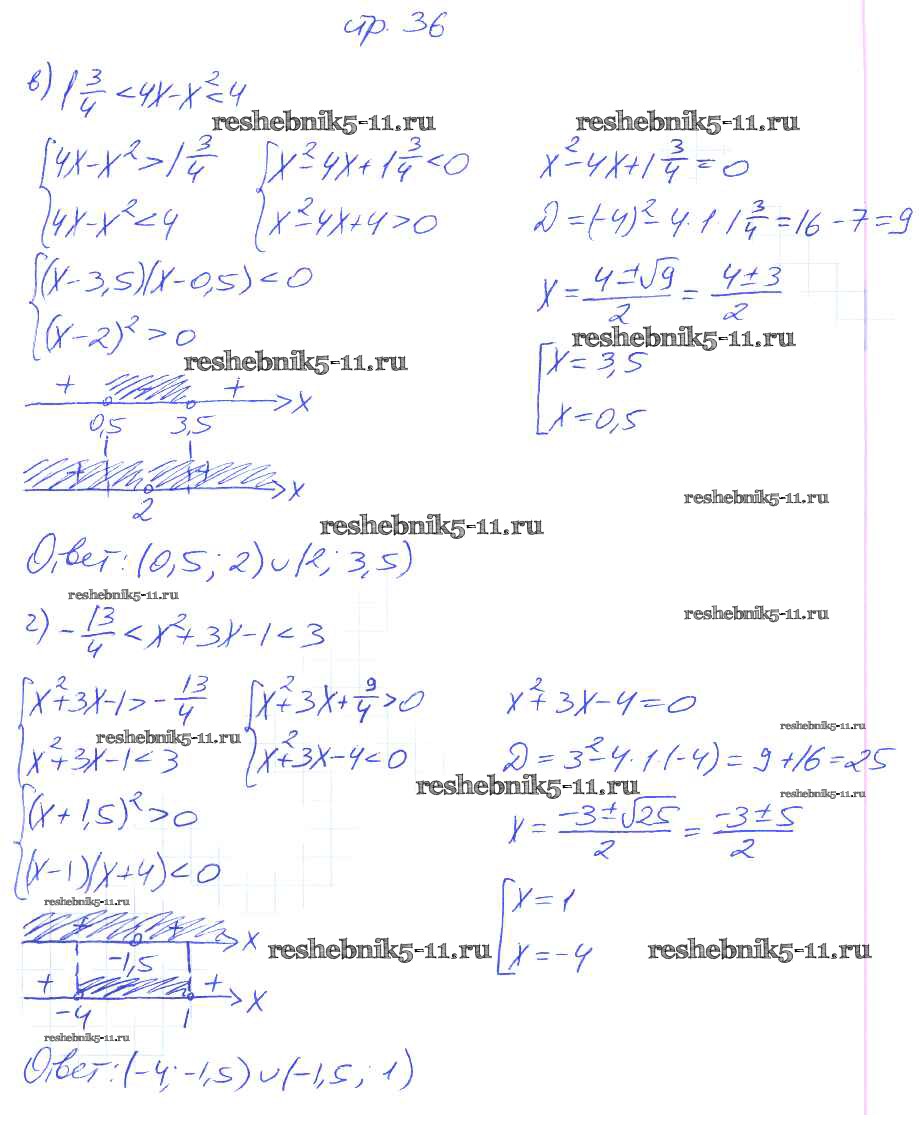 стр. 36
в) 1 3/4 < 4x - x² < 4
reshebnik5-11.ru reshebnik5-11.ru
{ 4x - x² > 1 3/4 { x² - 4x + 1 3/4 < 0 x² - 4x + 1 3/4 = 0
{ 4x - x² < 4 { x² - 4x + 4 > 0 D = (-4)² - 4·1·1 3/4 = 16 - 7 = 9
{ (x - 3,5)(x - 0,5) < 0 x = (4 ± √9)/2 = (4 ± 3)/2
{ (x - 2)² > 0
reshebnik5-11.ru reshebnik5-11.ru
[ x = 3,5
[ x = 0,5
+ + x
0,5 3,5
+ + x
2
reshebnik5-11.ru
reshebnik5-11.ru
Ответ: (0,5; 2) ∪ (2; 3,5)
reshebnik5-11.ru
reshebnik5-11.ru
г) -13/4 < x² + 3x - 1 < 3
{ x² + 3x - 1 > -13/4 { x² + 3x + 9/4 > 0 x² + 3x - 4 = 0
reshebnik5-11.ru reshebnik5-11.ru
{ x² + 3x - 1 < 3 { x² + 3x - 4 < 0 D = 3² - 4·1·(-4) = 9 + 16 = 25
reshebnik5-11.ru reshebnik5-11.ru
{ (x + 1,5)² > 0 x = (-3 ± √25)/2 = (-3 ± 5)/2
{ (x - 1)(x + 4) < 0
reshebnik5-11.ru
[ x = 1
[ x = -4
+ + x
-1,5
reshebnik5-11.ru reshebnik5-11.ru
+ + x
-4 1
reshebnik5-11.ru
Ответ: (-4; -1,5) ∪ (-1,5; 1)